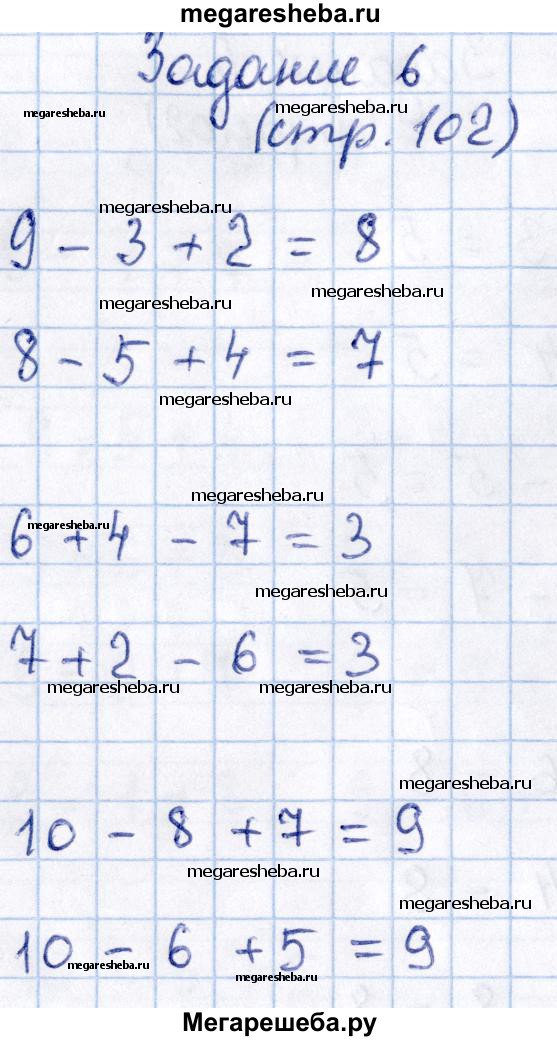 megaresheba.ru
Задание 6
megaresheba.ru megaresheba.ru
(стр. 102)
megaresheba.ru
9 - 3 + 2 = 8
megaresheba.ru megaresheba.ru
8 - 5 + 4 = 7
megaresheba.ru
megaresheba.ru
megaresheba.ru
6 + 4 - 7 = 3
megaresheba.ru
7 + 2 - 6 = 3
megaresheba.ru megaresheba.ru
megaresheba.ru
10 - 8 + 7 = 9
megaresheba.ru
megaresheba.ru
10 - 6 + 5 = 9
megaresheba.ru megaresheba.ru
Мегарешеба.ру